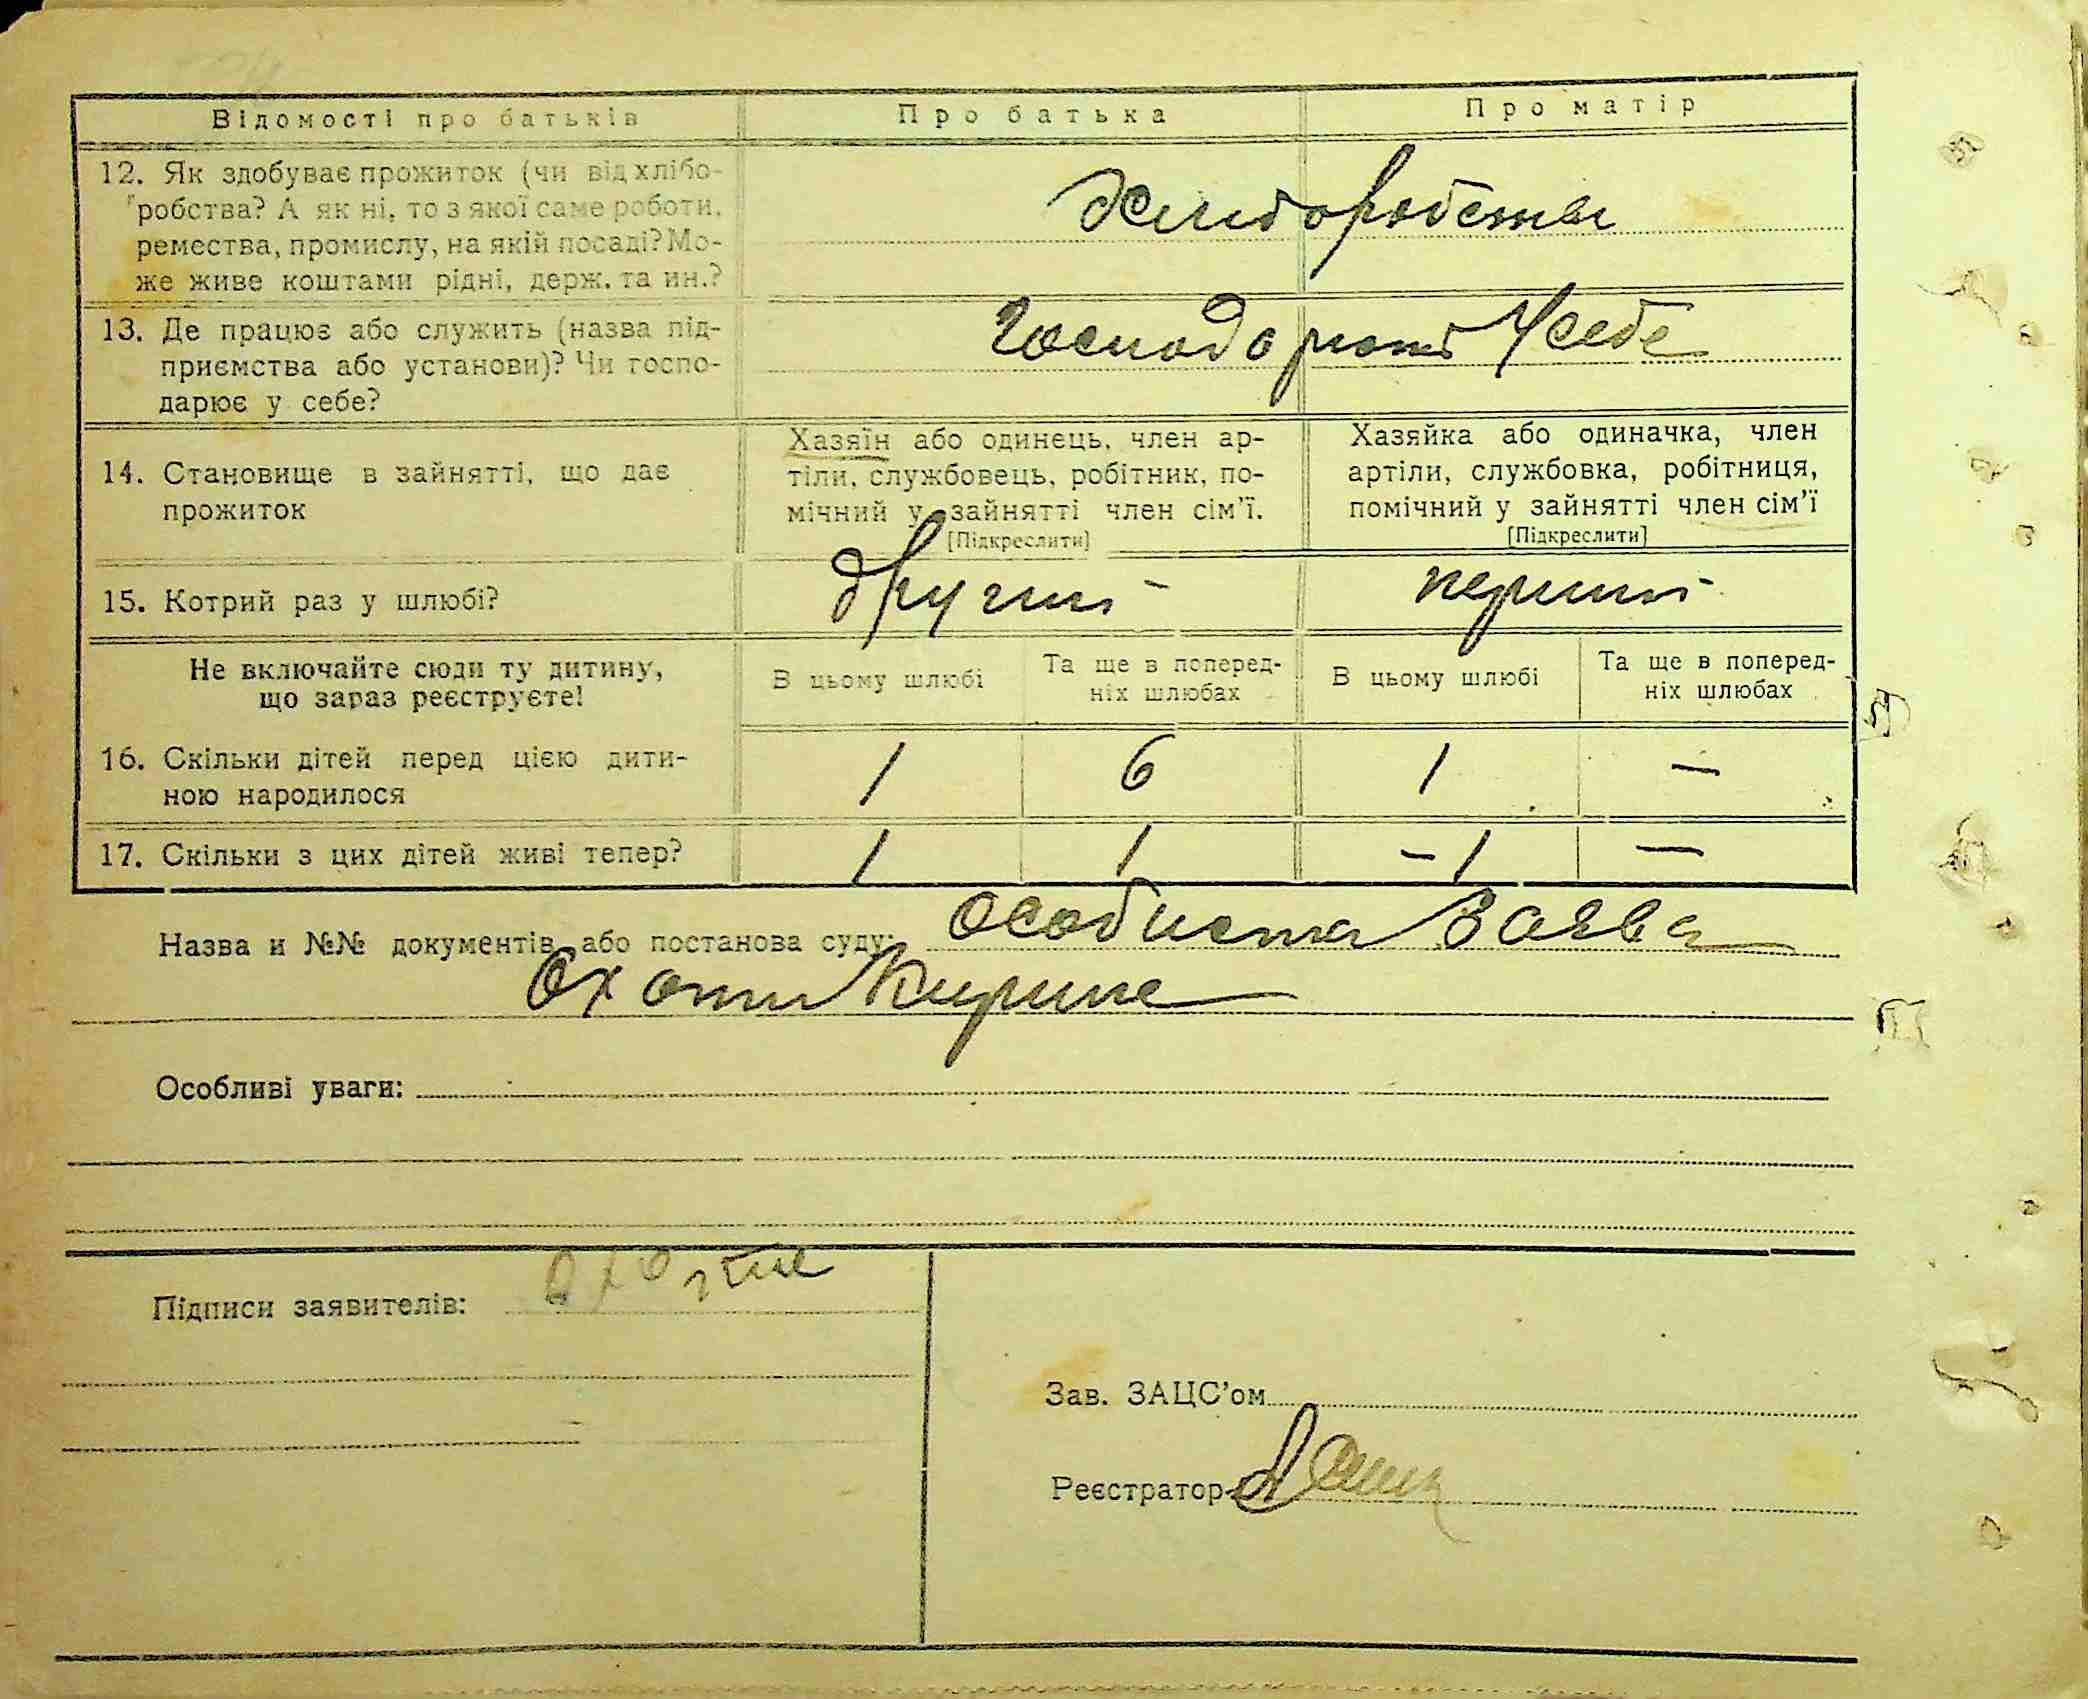 Відомості про батьків Про батька Про матір
12. Як здобуває прожиток (чи від хлібо-
робства? А як ні, то з якої саме роботи,
ремества, промислу, на якій посаді? Мо-
же живе коштами рідні, держ. та ин.?
13. Де працює або служить (назва під-
приємства або установи)? Чи госпо-
дарює у себе?
У себе
14. Становище в зайнятті, що дає
прожиток
Хазяїн або одинець, член ар-
тіли, службовець, робітник, по-
мічний у зайнятті член сім'ї.
[Підкреслити]
Хазяйка або одиначка, член
артіли, службовка, робітниця,
помічний у зайнятті член сім'ї
[Підкреслити]
15. Котрий раз у шлюбі? другий перший
Не включайте сюди ту дитину,
що зараз реєструєте!
В цьому шлюбі
Та ще в поперед-
ніх шлюбах
В цьому шлюбі
Та ще в поперед-
ніх шлюбах
16. Скільки дітей перед цією дити-
ною народилося
1 6 1 —
17. Скільки з цих дітей живі тепер? 1 1 – 1 —
Назва и №№ документів або постанова суду: особиста заява
Особливі уваги:
Підписи заявителів:
Зав. ЗАЦС'ом
Реєстратор